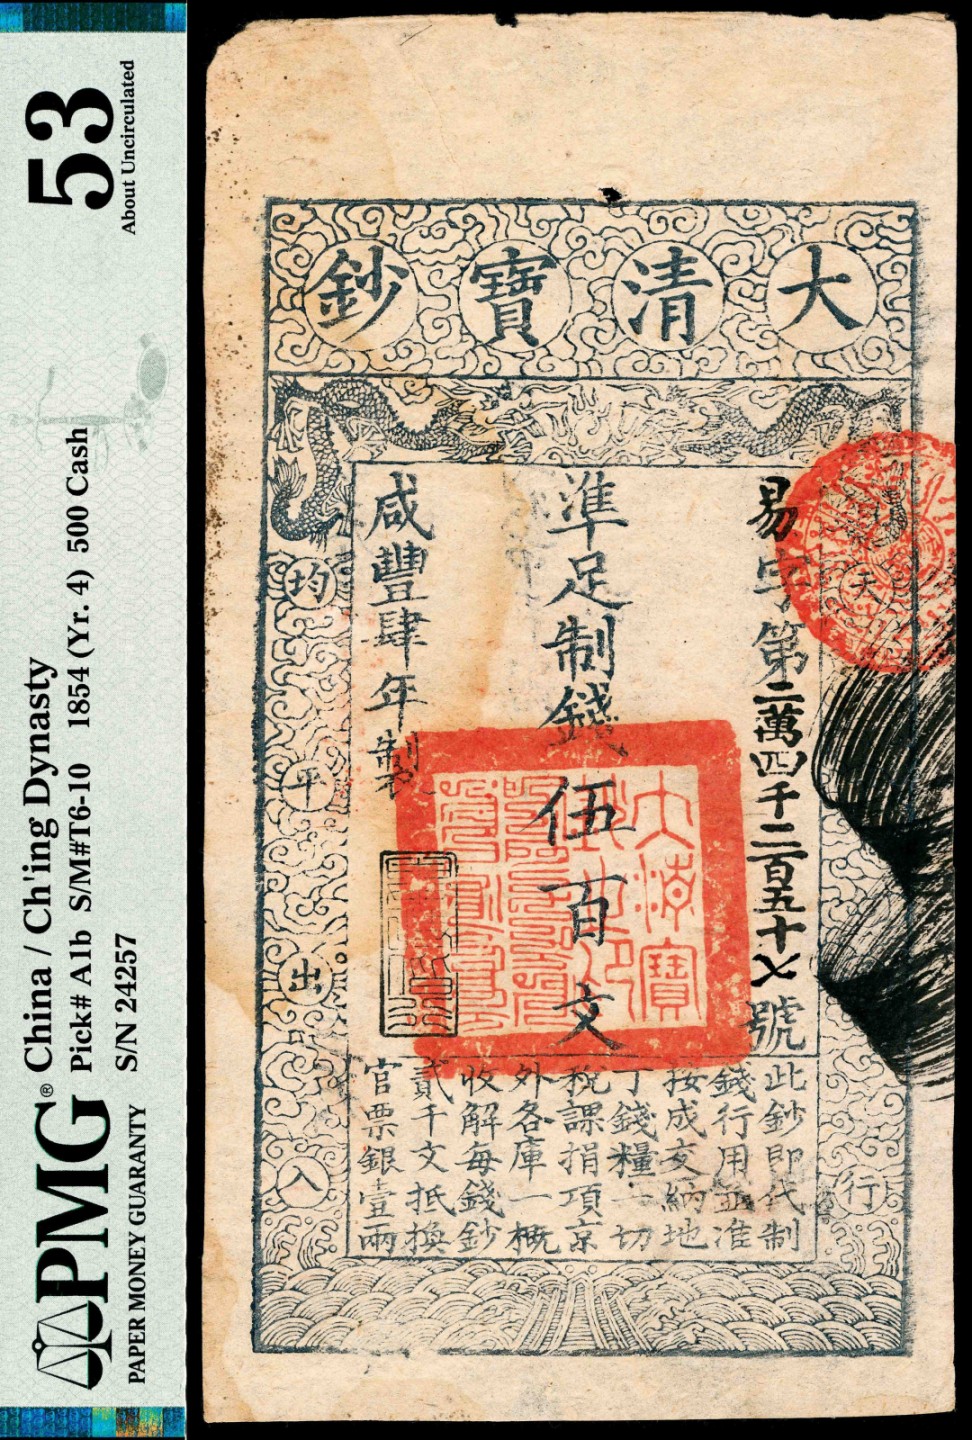 PMG®
PAPER MONEY GUARANTY
China / Ch'ing Dynasty
Pick# A1b S/M#T6-10 1854 (Yr. 4) 500 Cash
S/N 24257
53
About Uncirculated
大清寶鈔
天
行
易字第二萬四千二百五十七號
準足制錢伍百文
咸豐肆年製
均平出入
此鈔即代制
錢行用並准
按成交納地
丁錢糧一切
稅課捐項京
外各庫一概
收解每錢鈔
貳千文抵換
官票銀壹兩